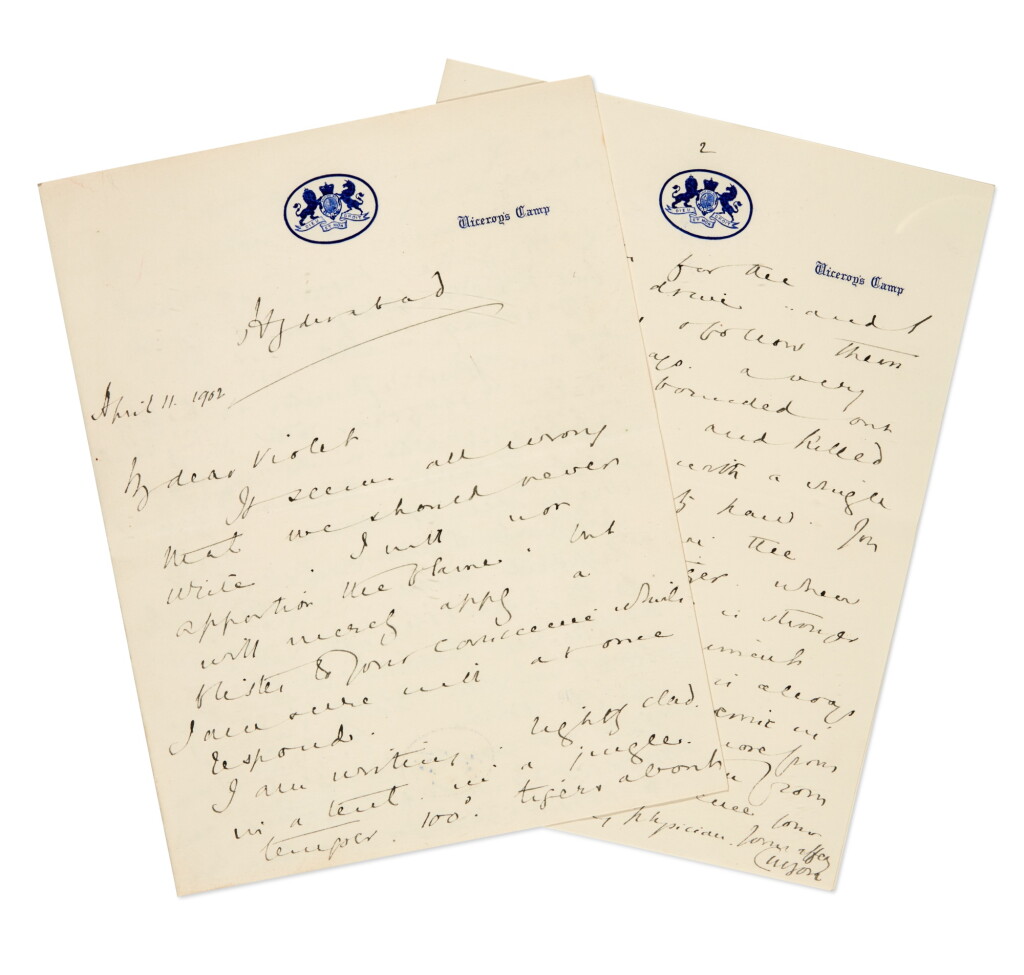 DIEU ET MON DROIT
Viceroy's Camp
Hyderabad
April 11. 1902
My dear Violet
It seems all wrong
that we should never
write. I will not
apportion the blame. but
will merely apply a
blister to your conscience which
I am sure will at once
respond.
I am writing lightly clad.
in a tent. in a jungle.
temper. 100°. tigers about
2
DIEU ET MON DROIT
Viceroy's Camp
for the
drive and I
follow them
ago. a very
bounded out
and killed
with a single
paw. You
in the
when
is stronger
is always
in
more from
from
your
physician. Yours affey
Curzon